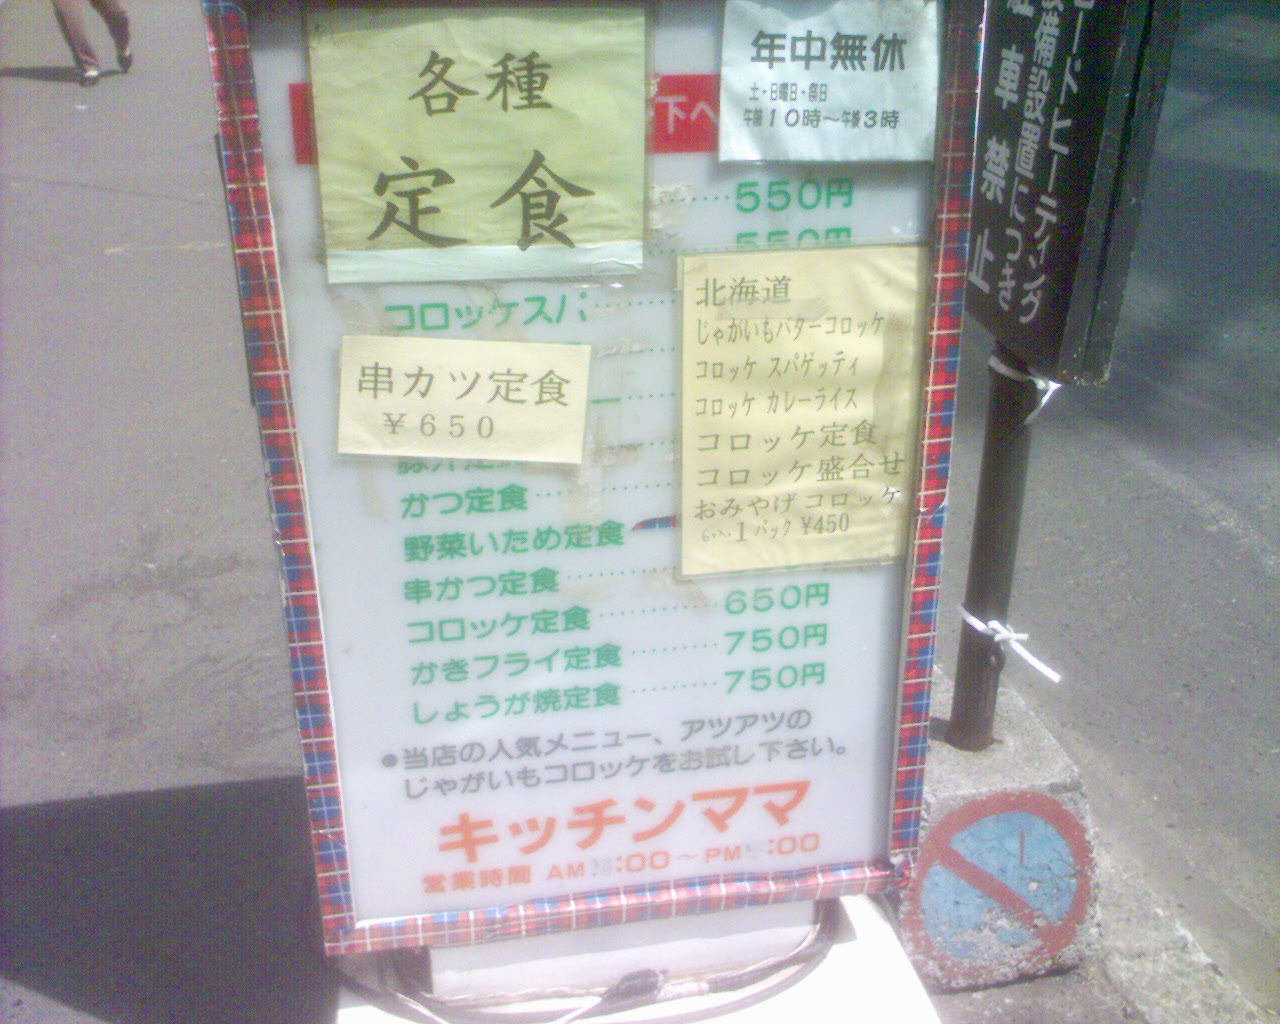 各種
定食
下へ
年中無休
土・日曜日・祭日
午前10時～午後3時
550円
550円
コロッケスパ
北海道
じゃがいもバターコロッケ
コロッケ スパゲッティ
コロッケ カレーライス
コロッケ定食
コロッケ盛合せ
おみやげコロッケ
1パック ¥450
串カツ定食
¥650
かつ定食
野菜いため定食
串かつ定食
コロッケ定食 650円
かきフライ定食 750円
しょうが焼定食 750円
●当店の人気メニュー、アツアツの
じゃがいもコロッケをお試し下さい。
キッチンママ
営業時間 AM :00～PM :00
車禁止
ードヒーティング
設置につき